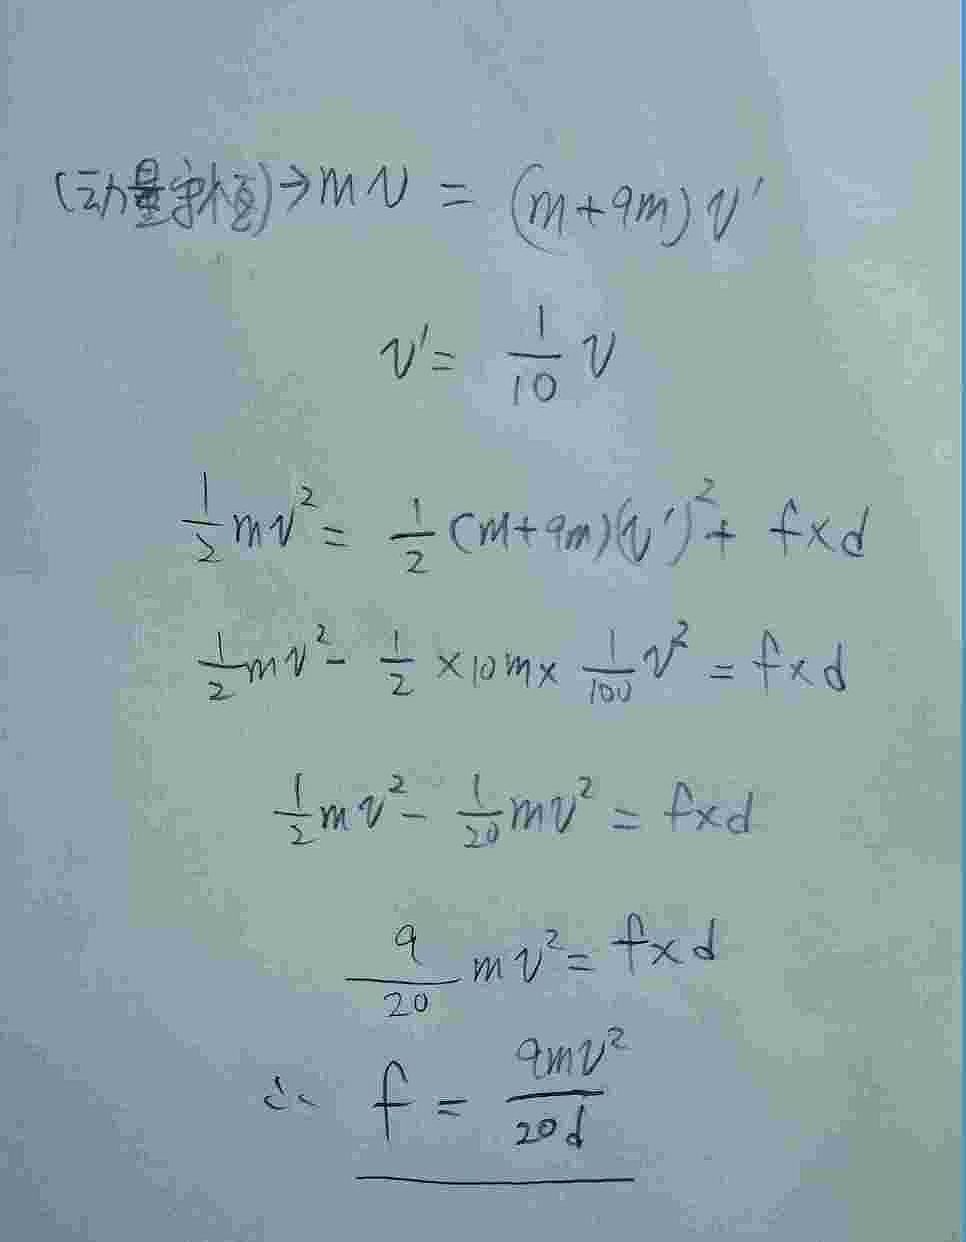 (动量守恒)→mv = (m+9m)v'
v'= 1/10 v
1/2 mv²= 1/2 (m+9m)(v')²+ f×d
1/2 mv²- 1/2 ×10m× 1/100 v² = f×d
1/2 mv²- 1/20 mv² = f×d
9/20 mv²= f×d
∴ f = 9mv²/20d